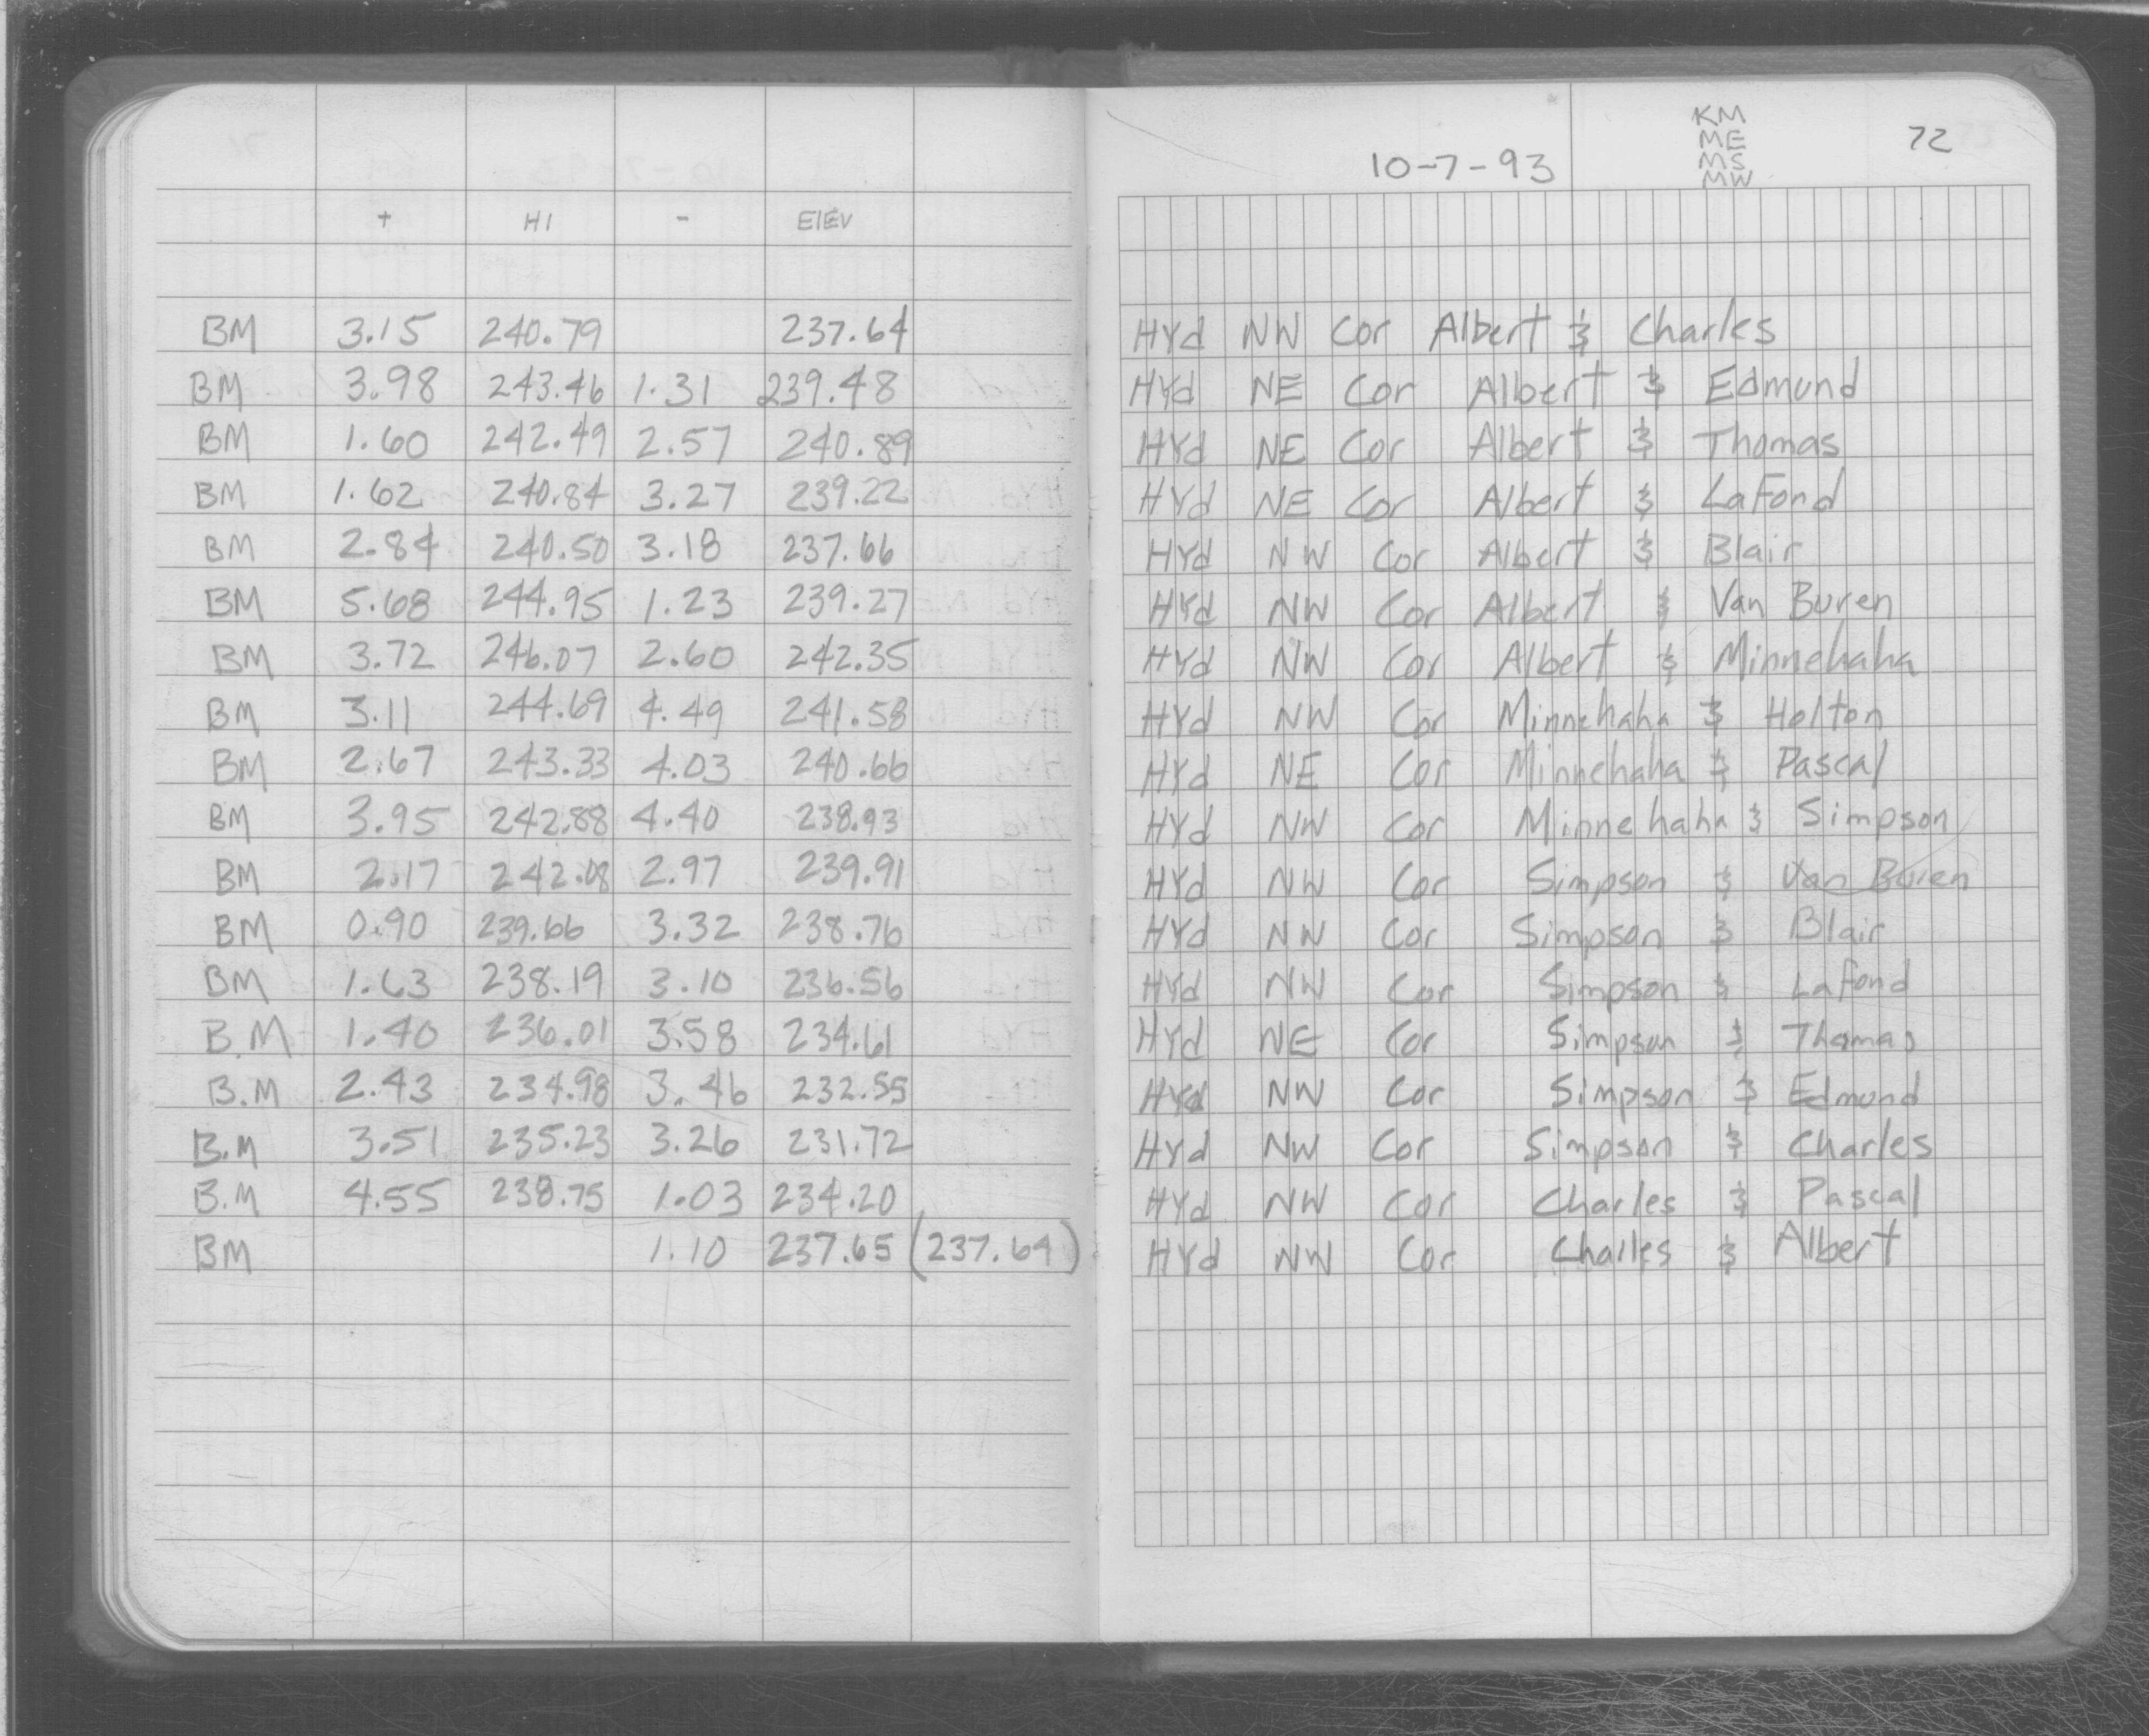 KM
ME
MS
MW
72
10-7-93
+ HI - ElEV
BM 3.15 240.79 237.64 HYd NW Cor Albert & Charles
BM 3.98 243.46 1.31 239.48 HYd NE Cor Albert & Edmund
BM 1.60 242.49 2.57 240.89 HYd NE Cor Albert & Thomas
BM 1.62 240.84 3.27 239.22 HYd NE Cor Albert & LaFond
BM 2.84 240.50 3.18 237.66 HYd NW Cor Albert & Blair
BM 5.68 244.95 1.23 239.27 HYd NW Cor Albert & Van Buren
BM 3.72 246.07 2.60 242.35 HYd NW Cor Albert & Minnehaha
BM 3.11 244.69 4.49 241.58 HYd NW Cor Minnehaha & Holton
BM 2.67 243.33 4.03 240.66 HYd NE Cor Minnehaha & Pascal
BM 3.95 242.88 4.40 238.93 HYd NW Cor Minnehaha & Simpson
BM 2.17 242.08 2.97 239.91 HYd NW Cor Simpson & Van Buren
BM 0.90 239.66 3.32 238.76 HYd NW Cor Simpson & Blair
BM 1.63 238.19 3.10 236.56 HYd NW Cor Simpson & Lafond
B.M 1.40 236.01 3.58 234.61 HYd NE Cor Simpson & Thomas
B.M 2.43 234.98 3.46 232.55 HYd NW Cor Simpson & Edmund
B.M 3.51 235.23 3.26 231.72 HYd NW Cor Simpson & Charles
B.M 4.55 238.75 1.03 234.20 HYd NW Cor Charles & Pascal
BM 1.10 237.65 (237.64) HYd NW Cor Charles & Albert